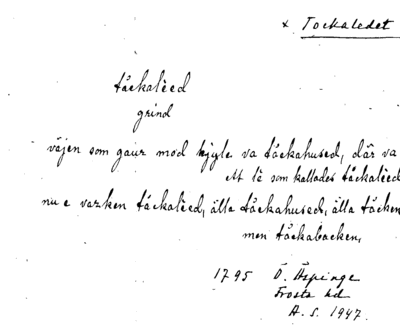 x Tockaledet
tåckalèed
grind
väjen som gaur mod hjyle va tåckahused, där va
ett lè som kallades tåckalèed
nu e varken tåckalèed, älla tåckahused, älla tåcken
men tåckabacken,
1795 Ö. Äspinge
Frosta hd
A. S. 1947.